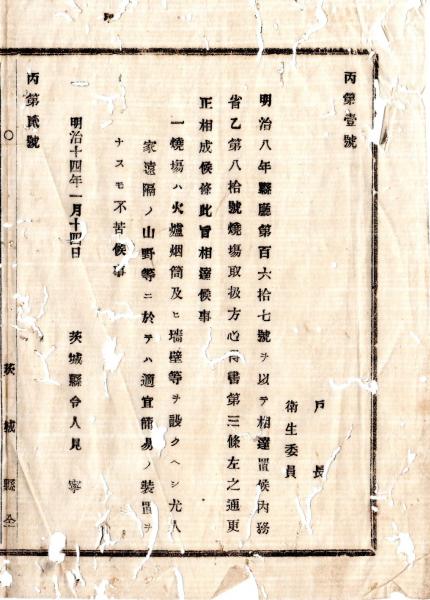 丙第壹號
戸長
衛生委員
明治八年縣廳第百六拾七號ヲ以テ相達置候內務
省乙第八拾號燒場取扱方心得書第三條左之通更
正相成候條此旨相達候事
一燒場ハ火爐烟筒及ヒ墻壁等ヲ設クヘシ尤人
家遠隔ノ山野等ニ於テハ適宜簡易ノ裝置ヲ
ナスモ不苦候事
明治十四年一月十四日
茨城縣令人見寧
丙第貳號
○
茨城縣